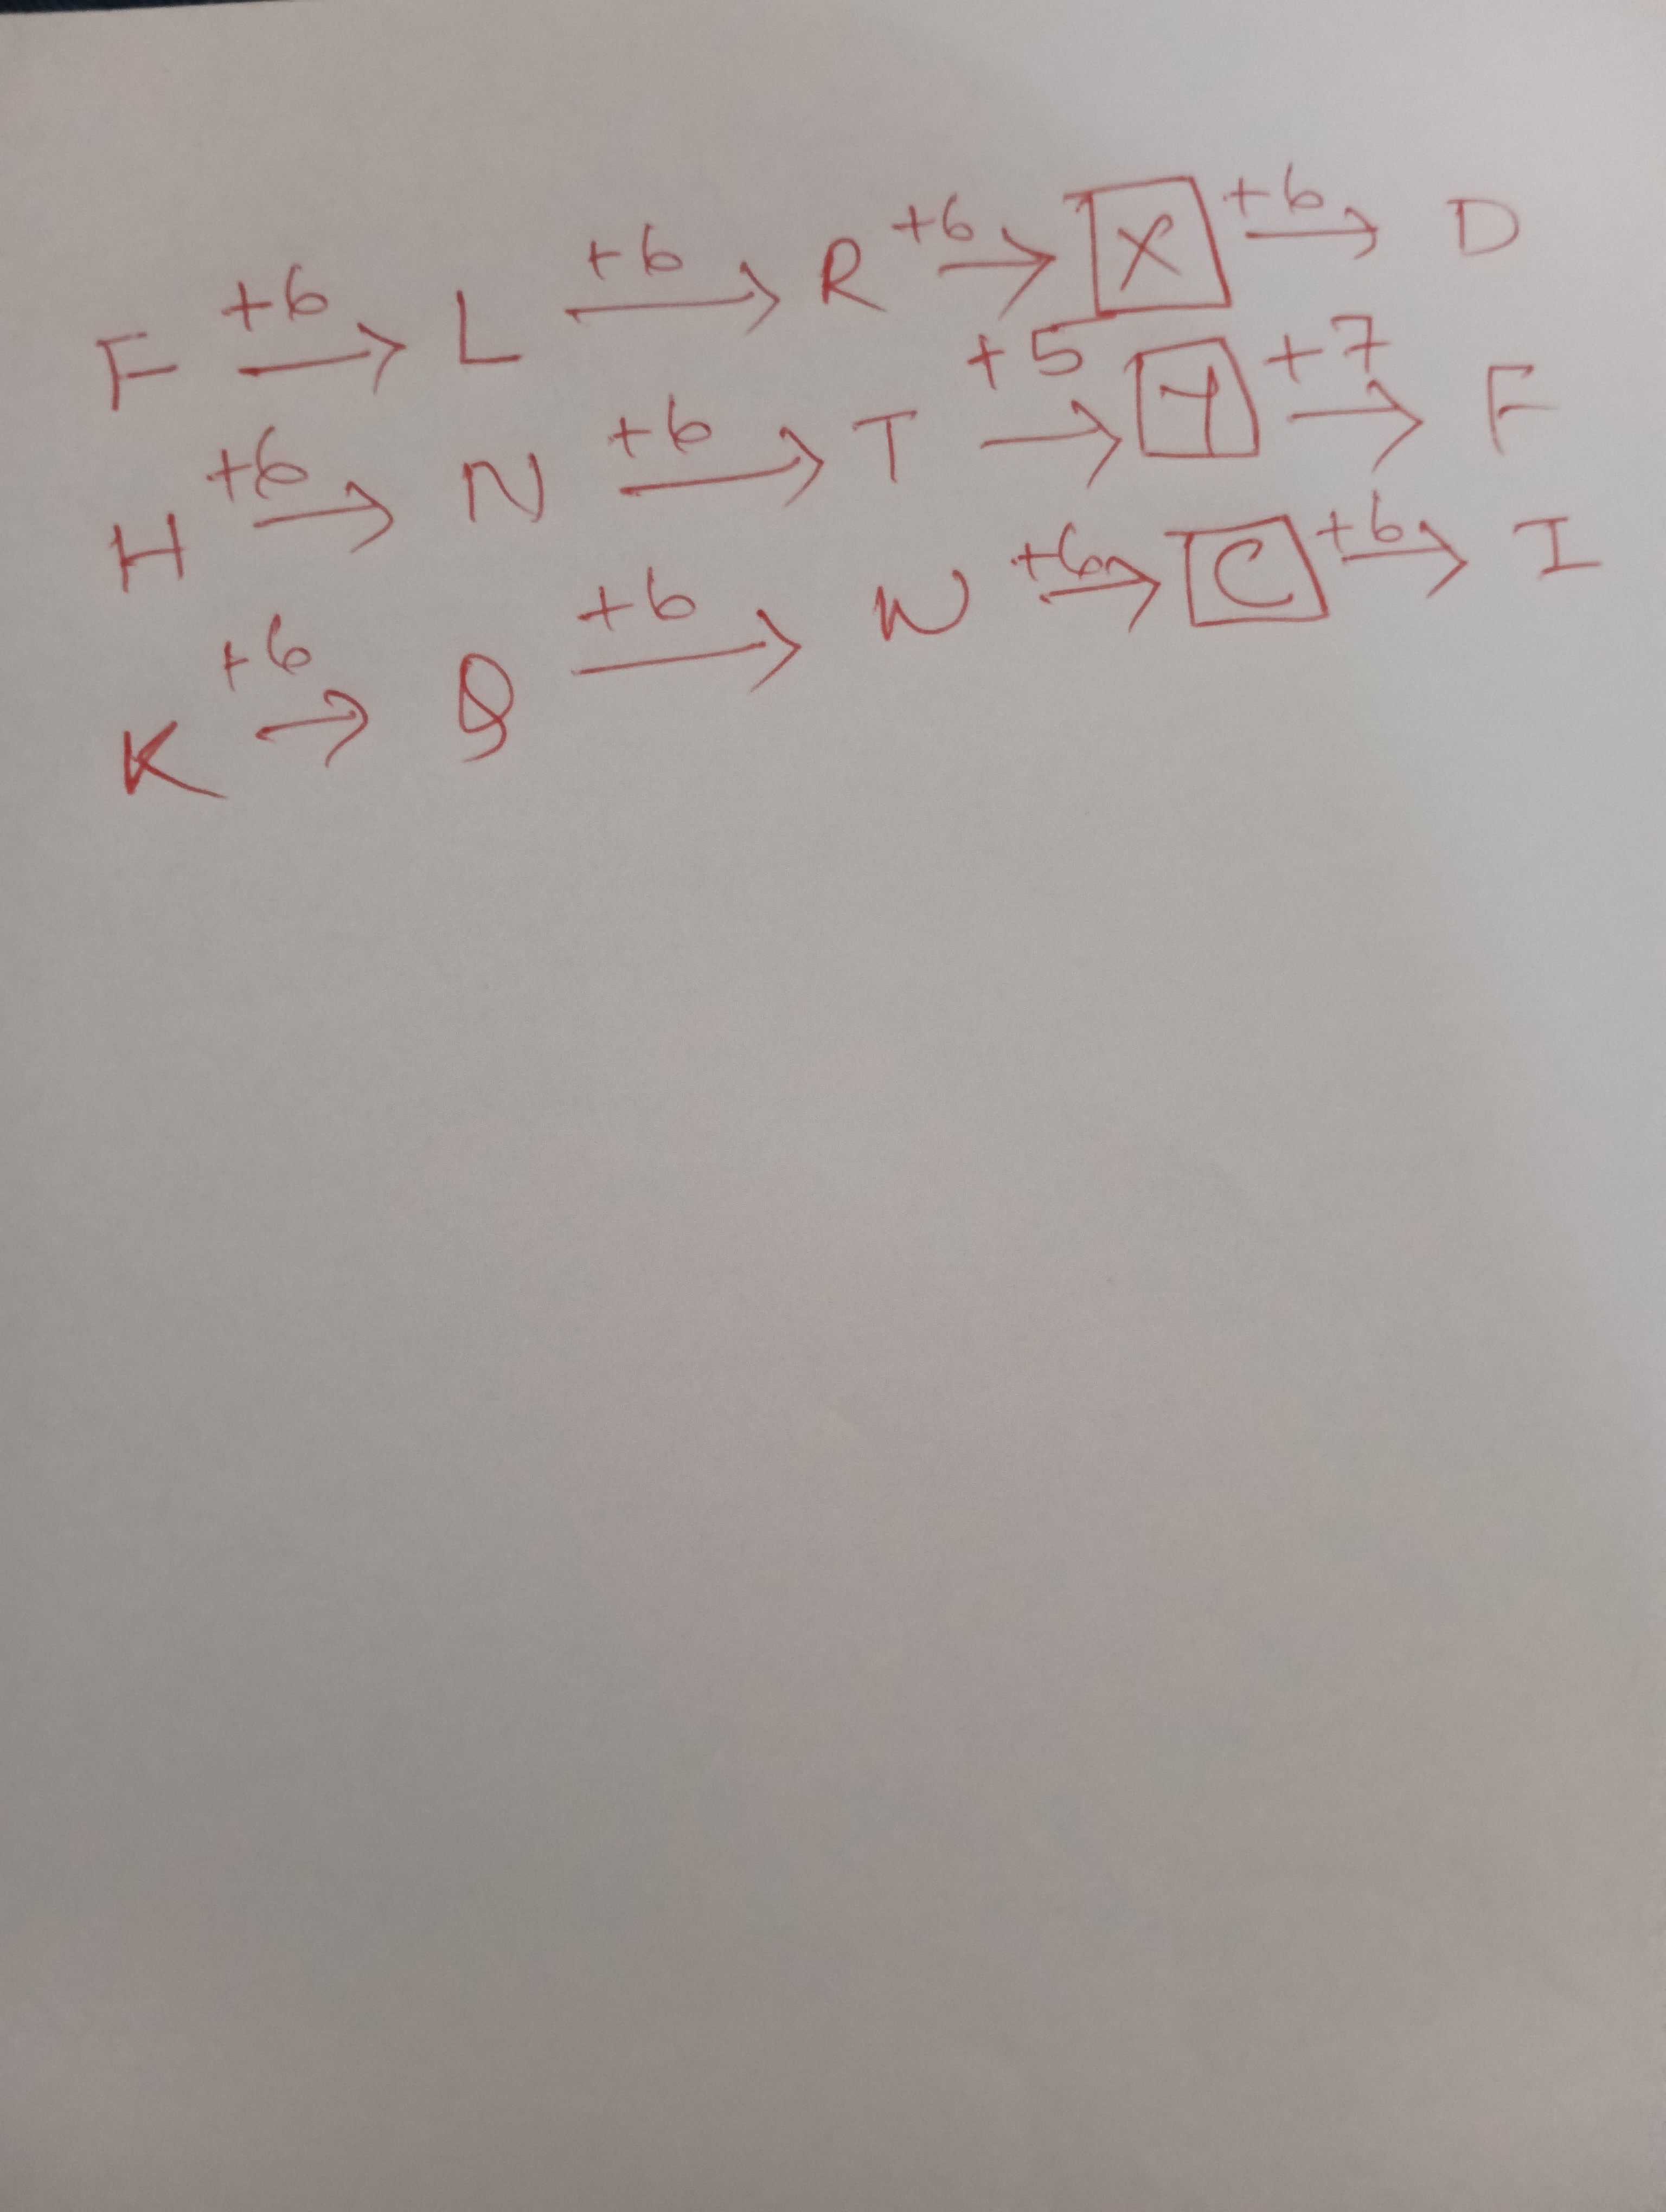 F +6→ L +6→ R +6→ X +6→ D
H +6→ N +6→ T +5→ Y +7→ F
K +6→ Q +6→ W +6→ C +6→ I